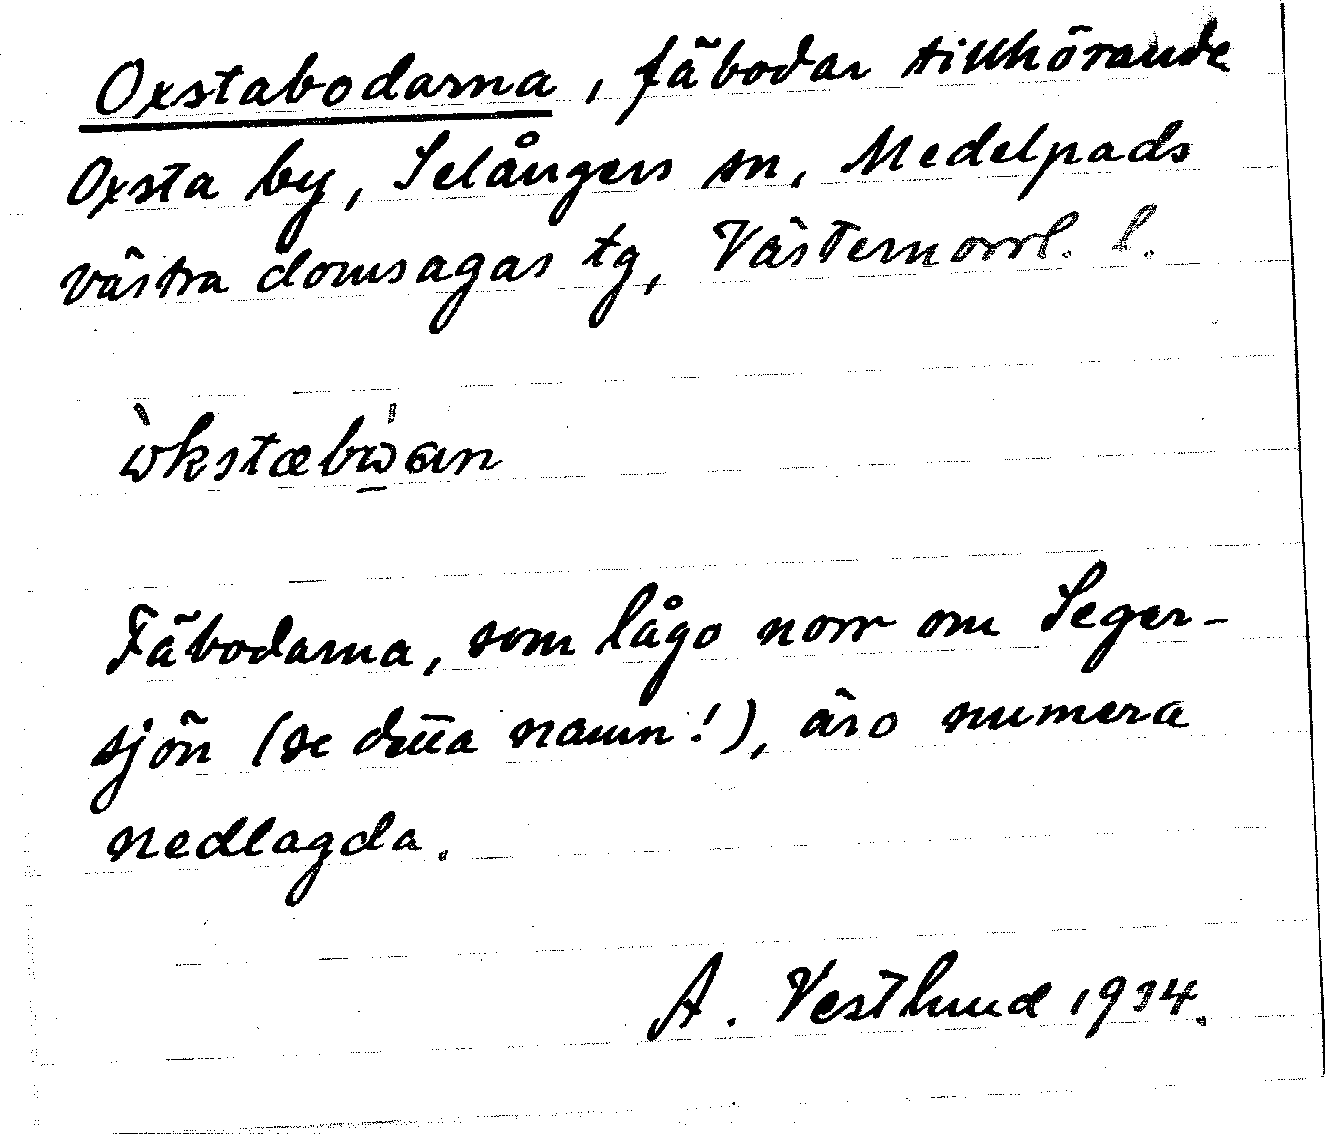 Oxstabodarna, fäbodar tillhörande
Oxsta by, Selångers sn, Medelpads
västra domsagas tg, Västernorrl. l.
Fäbodarna, som lågo norr om Seger-
sjön (se detta namn!), äro numera
nedlagda.
A. Vestlund 1934.